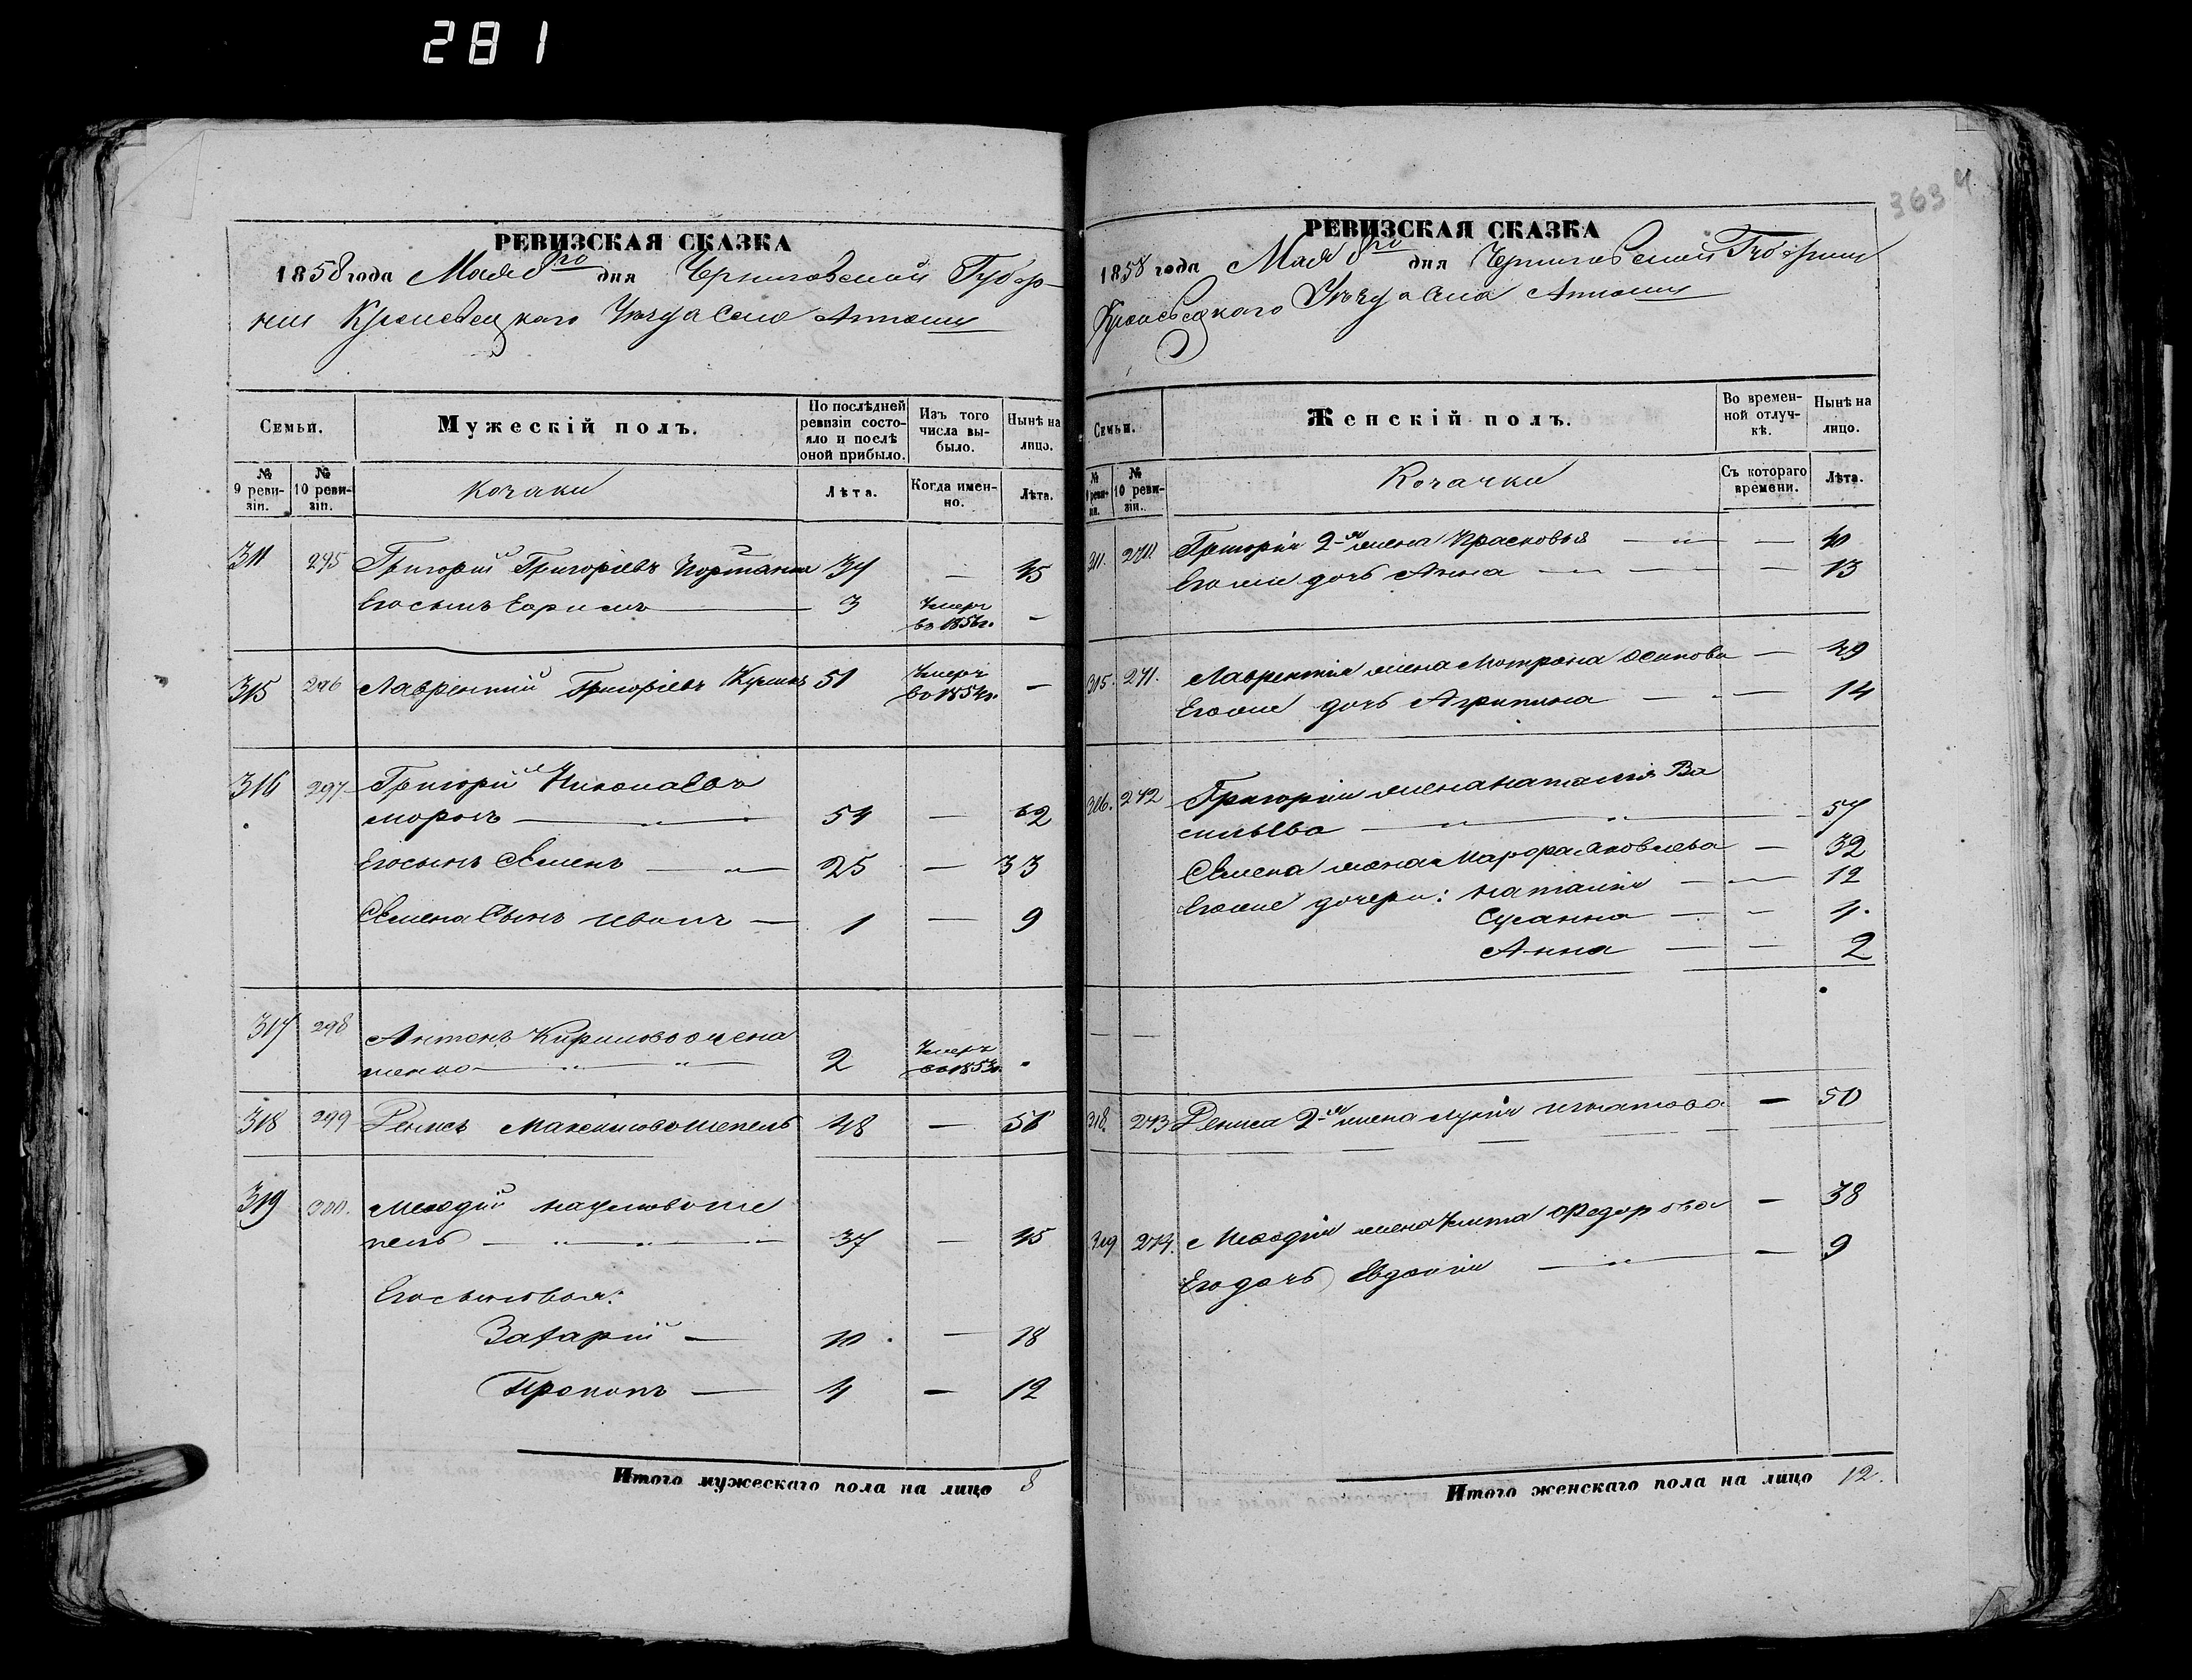 281
363
РЕВИЗСКАЯ СКАЗКА
1858 года Мая 8го дня Черниговской Губер-
нии Кролевецкого Уезда Села
Семьи.
Мужескій полъ.
По послѣдней ревизіи состояло и послѣ оной прибыло.
Изъ того числа выбыло.
Нынѣ на лицо.
№ 9 ревизіи.
№ 10 ревизіи.
Козаки
Лѣта.
Когда именно.
Лѣта.
311 295 Григорий Григоріевъ 37 — 45
Его сынъ 3 Умеръ въ 1856г. —
315 296 Лаврентий Григоріевъ 51 Умеръ —
316 297 Григорій Николаевъ
морозъ — 54 — 62
Его сынъ Семенъ — 25 — 33
Семена Сынъ иванъ — 1 — 9
317 298 Антонъ Кирилов
2 Умеръ
318 299 Денисъ Максимовъ шепель 48 — 56
319 300. Меѳодій наумовъ ше
пель — 37 — 45
Его сыновья:
Захарій — 10 — 18
Прокопъ — 4 — 12
Итого мужескаго пола на лицо 8
РЕВИЗСКАЯ СКАЗКА
1858 года Мая 8го дня Черниговской Губернии
Кролевецкаго Уезда Села
Семьи.
Женскій полъ.
Во временной отлучкѣ.
Нынѣ на лицо.
№ 9 ревизіи.
№ 10 ревизіи.
Козачки
Съ котораго времени.
Лѣта.
311. 270. Григорія 2-я жена Прасковья — — 40
Его же дочь Анна — — 13
315. 271. Лаврентія жена Мотрона осипова — 49
Его же дочь Агрипина — — 14
316. 272 Григорія жена наталія Ва
сильева — 57
Семена жена Марфа яковлева — 32
Его же дочери: наталия — — 12
Сусанна — — 4.
Анна — — 2
— —
318. 273 Дениса 2-я жена игнатова — 50
319 274. Меѳодія жена Улита Федорова — 38
Его дочь Евдокия — — 9
Итого женскаго пола на лицо 12.